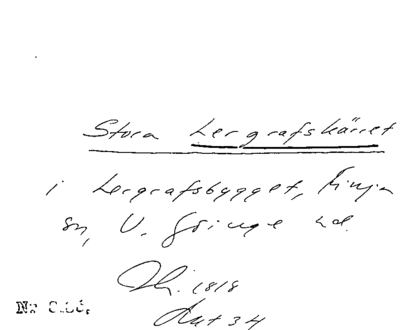 Stora Lergrafskärret
i Lergrafsbygget, Finja
sn, V. Göinge hd.
1818
Akt 34
Nr